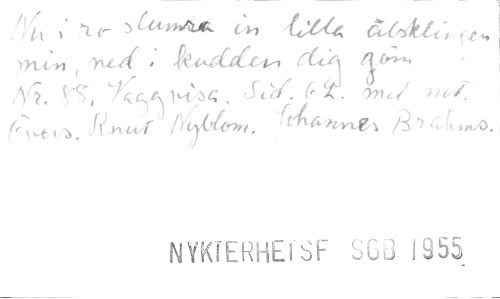 Nu i ro slumra in lilla älsklingen
min, ned i kudden dig göm
Nr. 88, Vaggvisa. Sid. 62. med not.
Övers. Knut Nyblom. Johannes Brahms.
NYKTERHETSF SGB 1955